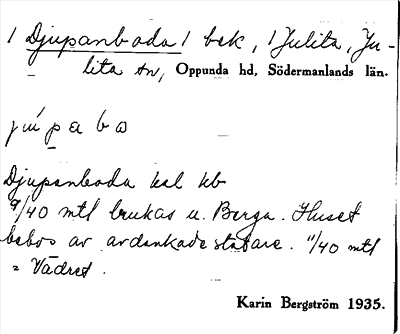 / Djupanboda / bek, / Julita, Ju-
lita sn, Oppunda hd, Södermanlands län.
júpabω
Djupanboda kal kb
9/40 mtl brukas u. Berga. Huset
bebos av avdankade statare. 11/40 mtl
= Vädret.
Karin Bergström 1935.